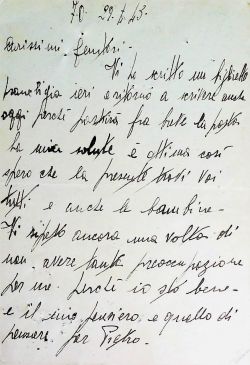 Carissimi Genitori -
Vi ho scritto un biglietto
franchigia ieri e ritorno a scrivere anche
oggi perché partirà fra tutta la posta
La mia salute è ottima così
spero che la presente trovi voi
tutti e anche le bambine -
Vi ripeto ancora una volta di
non avere tante preoccupazione
per me. Perché io stò bene -
e il mio pensiero, e quello di
pensare per Pietro.